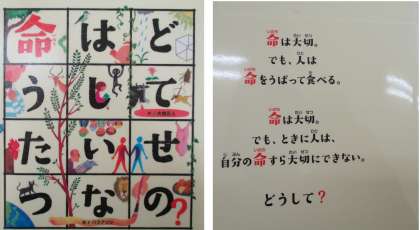 命はど
うして
たいせ
つなの?
命は大切。
でも、人は
命をうばって食べる。
命は大切。
でも、ときに人は、
自分の命すら大切にできない。
どうして?